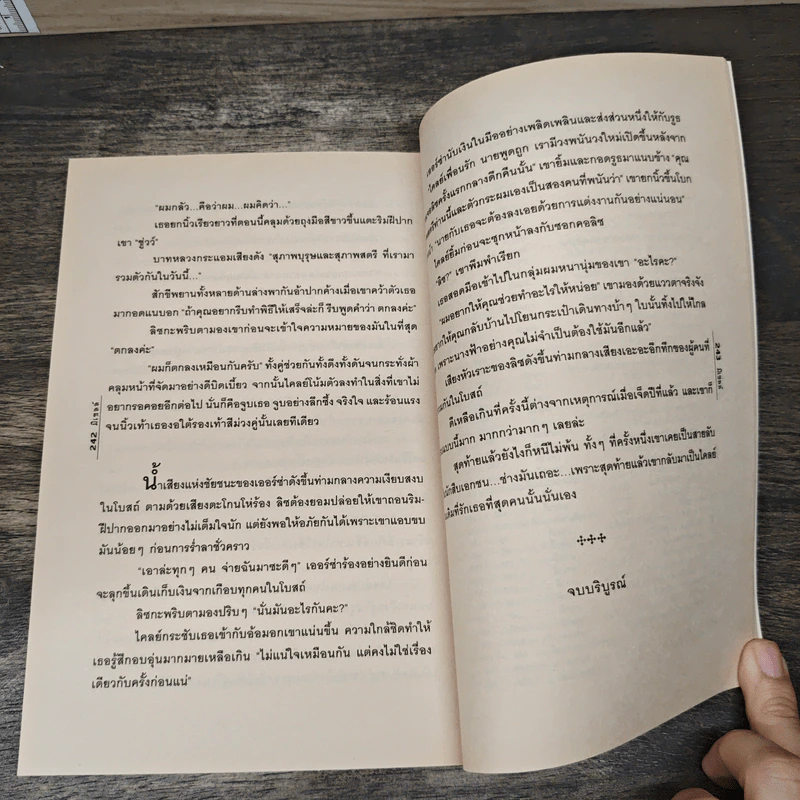 "ผมกลัว...คือว่าผม...ผมคิดว่า..."
เธอยกนิ้วเรียวยาวที่ตอนนี้คลุมด้วยถุงมือสีขาวขึ้นแตะริมฝีปาก
เขา "ชู่วว์"
บาทหลวงกระแอมเสียงดัง "สุภาพบุรุษและสุภาพสตรี ที่เรามา
รวมตัวกันในวันนี้..."
สักขีพยานทั้งหลายด้านล่างพากันอ้าปากค้างเมื่อเขาคว้าตัวเธอ
มากอดแนบอก "ถ้าคุณอยากรีบทำพิธีให้เสร็จล่ะก็ รีบพูดคำว่า ตกลงค่ะ"
ลิซกะพริบตามองเขาก่อนจะเข้าใจความหมายของมันในที่สุด
"ตกลงค่ะ"
"ผมก็ตกลงเหมือนกันครับ" ทั้งคู่ช่วยกันทั้งดึงทั้งดันจนกระทั่งผ้า
คลุมหน้าที่จัดมาอย่างดีบิดเบี้ยว จากนั้นไคลย์โน้มตัวลงทำในสิ่งที่เขาไม่
อยากรอคอยอีกต่อไป นั่นก็คือจูบเธอ จูบอย่างลึกซึ้ง จริงใจ และร้อนแรง
จนนิ้วเท้าเธองอใต้รองเท้าสีม่วงคู่นั้นเลยทีเดียว
242 มิเชลล์
น้ำเสียงแห่งชัยชนะของเออร์ซ่าดังขึ้นท่ามกลางความเงียบสงบ
ในโบสถ์ ตามด้วยเสียงตะโกนโห่ร้อง ลิซต้องยอมปล่อยให้เขาถอนริม-
ฝีปากออกมาอย่างไม่เต็มใจนัก แต่ยังพอให้อภัยกันได้เพราะเขาแอบขบ
มันน้อยๆ ก่อนการร่ำลาชั่วคราว
"เอาล่ะทุกๆ คน จ่ายฉันมาซะดีๆ" เออร์ซ่าร้องอย่างยินดีก่อน
จะลุกขึ้นเดินเก็บเงินจากเกือบทุกคนในโบสถ์
ลิซกะพริบตามองปริบๆ "นั่นมันอะไรกันคะ?"
ไคลย์กระชับเธอเข้ากับอ้อมอกเขาแน่นขึ้น ความใกล้ชิดทำให้
เธอรู้สึกอบอุ่นมากมายเหลือเกิน "ไม่แน่ใจเหมือนกัน แต่คงไม่ใช่เรื่อง
เดียวกับครั้งก่อนแน่"
เออร์ซ่านับเงินในมืออย่างเพลิดเพลินและส่งส่วนหนึ่งให้กับรูธ
ไคลย์เพื่อนรัก นายพูดถูก เรามีวงพนันวงใหม่เปิดขึ้นหลังจาก
ลิซครั้งแรกกลางดึกคืนนั้น" เขายิ้มและกอดรูธมาแนบข้าง "คุณ
ท่านนี้และตัวกระผมเองเป็นสองคนที่พนันว่า" เขายกนิ้วขึ้นโบก
"นายกับเธอจะต้องลงเอยด้วยการแต่งงานกันอย่างแน่นอน"
ไคลย์ยิ้มก่อนจะซุกหน้าลงกับซอกคอลิซ
"ลิซ" เขาพึมพำเรียก
เธอสอดมือเข้าไปในกลุ่มผมหนานุ่มของเขา "อะไรคะ?"
"ผมอยากให้คุณช่วยทำอะไรให้หน่อย" เขามองด้วยแววตาจริงจัง
อยากให้คุณกลับบ้านไปโยนกระเป๋าเดินทางบ้าๆ ใบนั้นทิ้งไปให้ไกล
เพราะนางฟ้าอย่างคุณไม่จำเป็นต้องใช้มันอีกแล้ว"
เสียงหัวเราะของลิซดังขึ้นท่ามกลางเสียงเอะอะอึกทึกของผู้คนที่
กันในโบสถ์
ดีเหลือเกินที่ครั้งนี้ต่างจากเหตุการณ์เมื่อเจ็ดปีที่แล้ว และเขาก็
แบบนี้มาก มากกว่ามากๆ เลยล่ะ
สุดท้ายแล้วยังไงก็หนีไม่พ้น ทั้งๆ ที่ครั้งหนึ่งเขาเคยเป็นสายลับ
นักสืบเอกชน...ช่างมันเถอะ...เพราะสุดท้ายแล้วเขากลับมาเป็นไคลย์
ที่รักเธอที่สุดคนนั้นนั่นเอง
243 มิเชลล์
จบบริบูรณ์